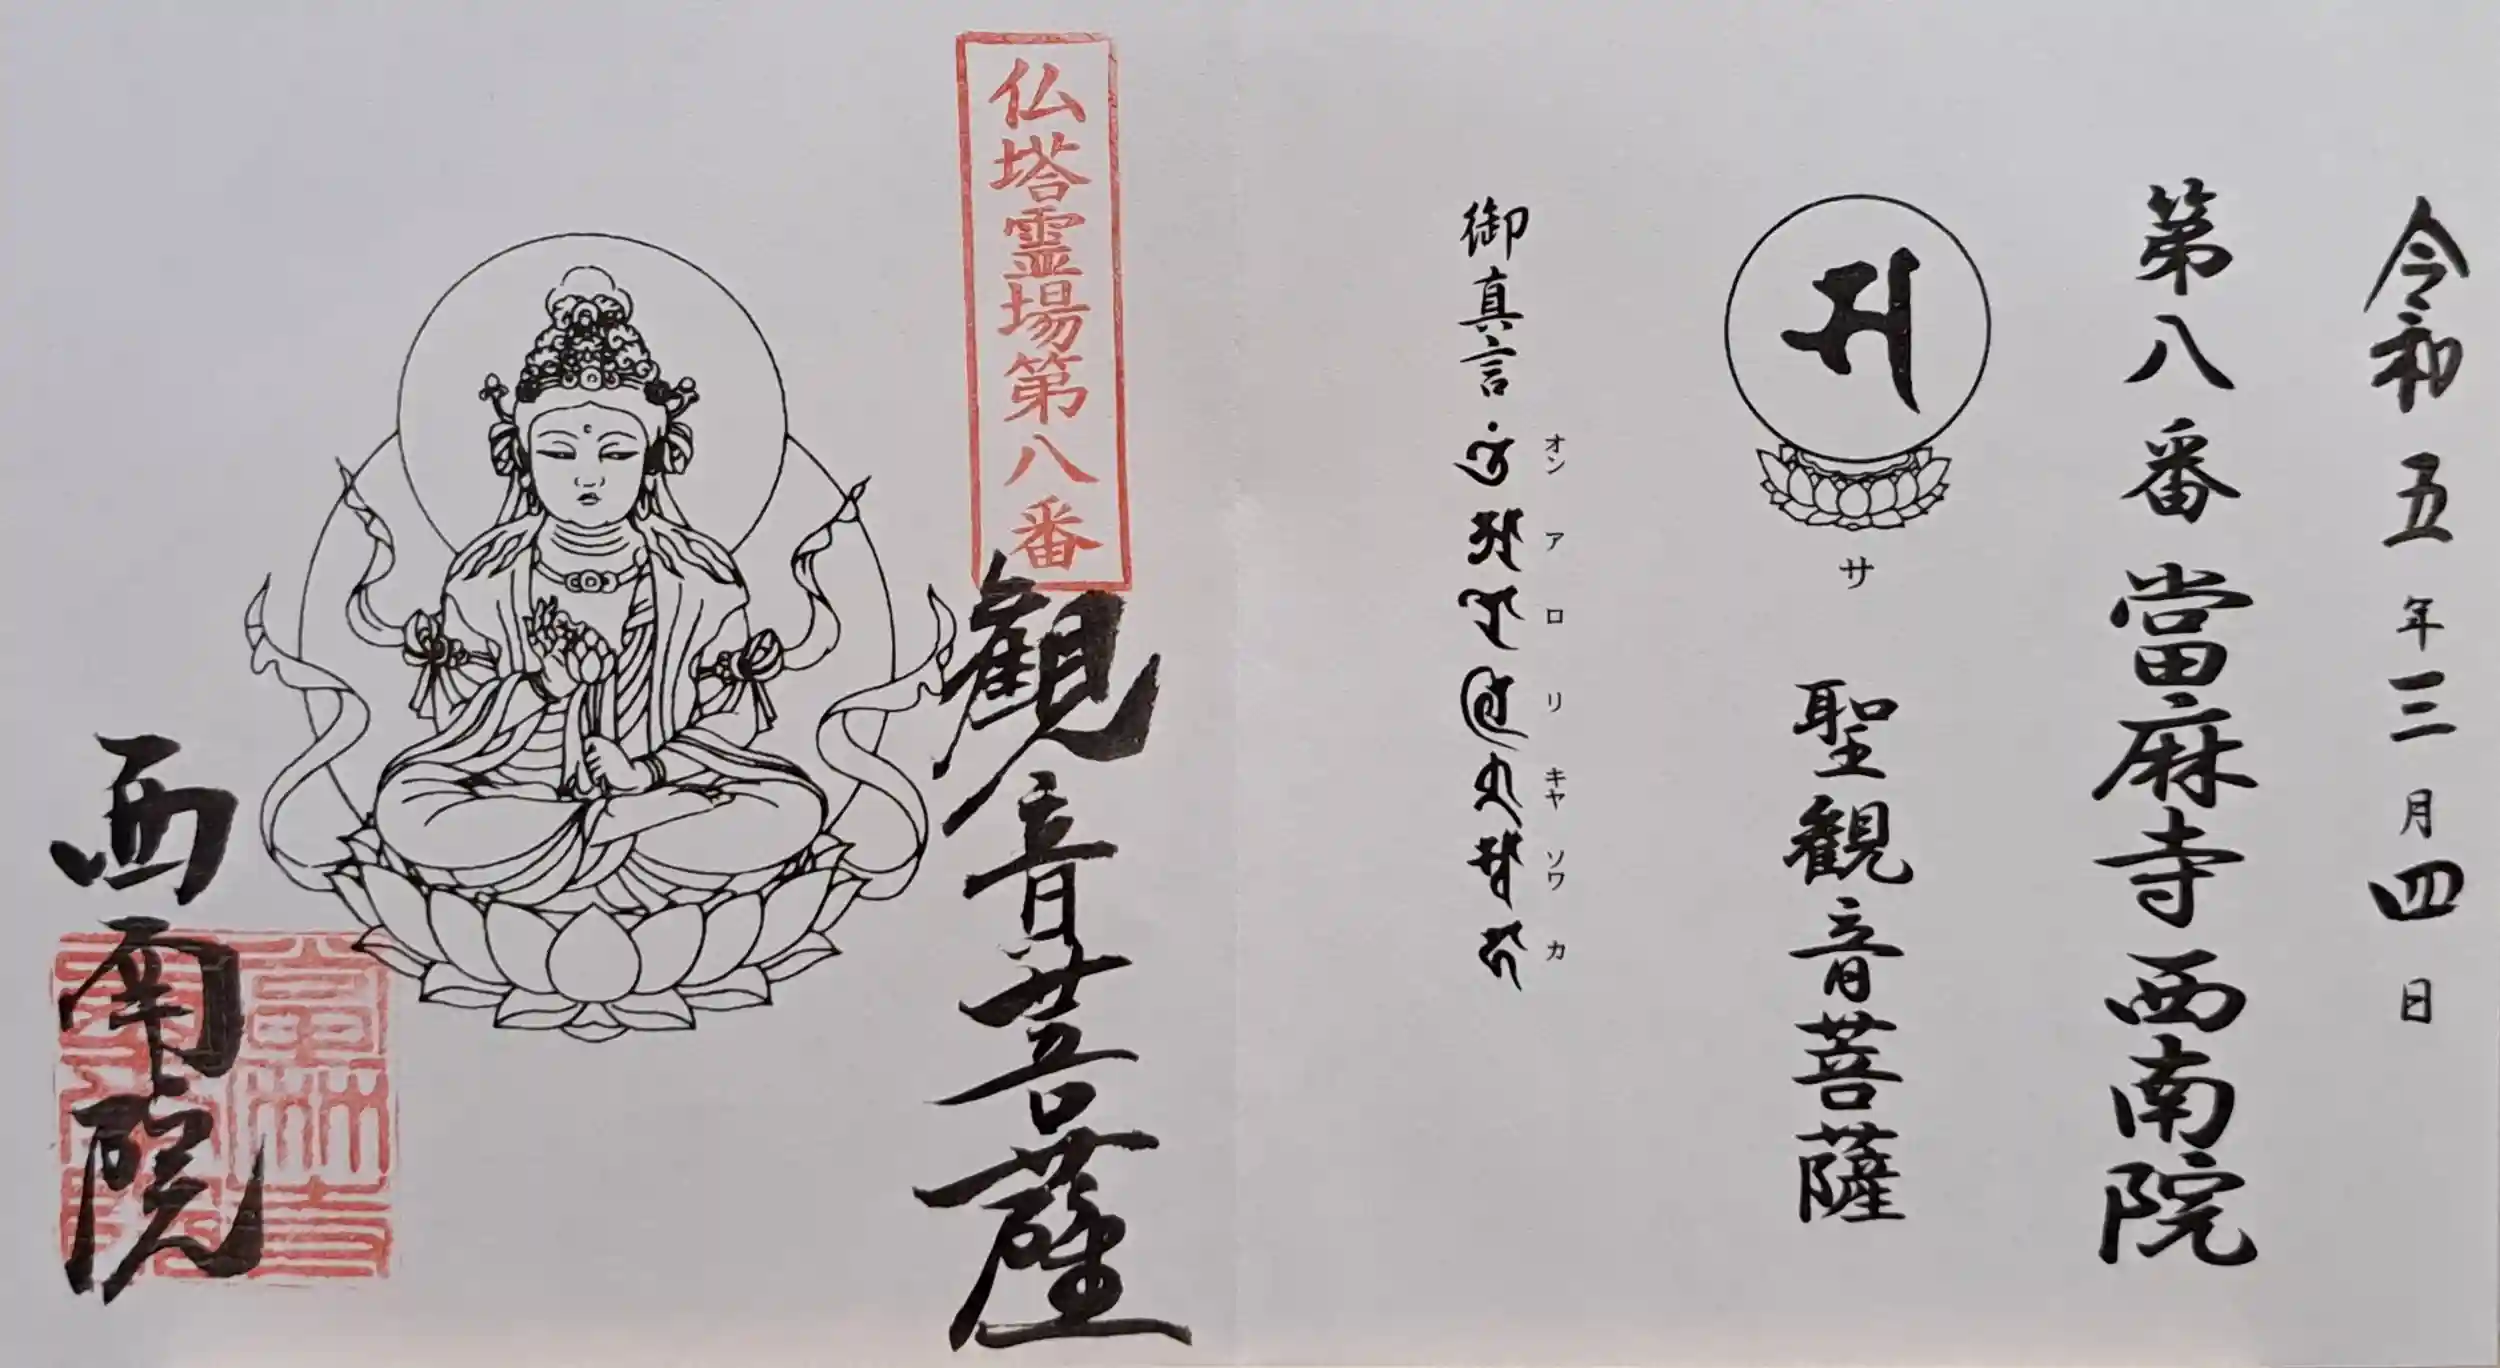 令和五年三月四日
第八番當麻寺西南院
サ
聖観音菩薩
オンアロリキャソワカ
御真言
仏塔霊場第八番
觀音菩薩
西南院
當麻寺
西南院